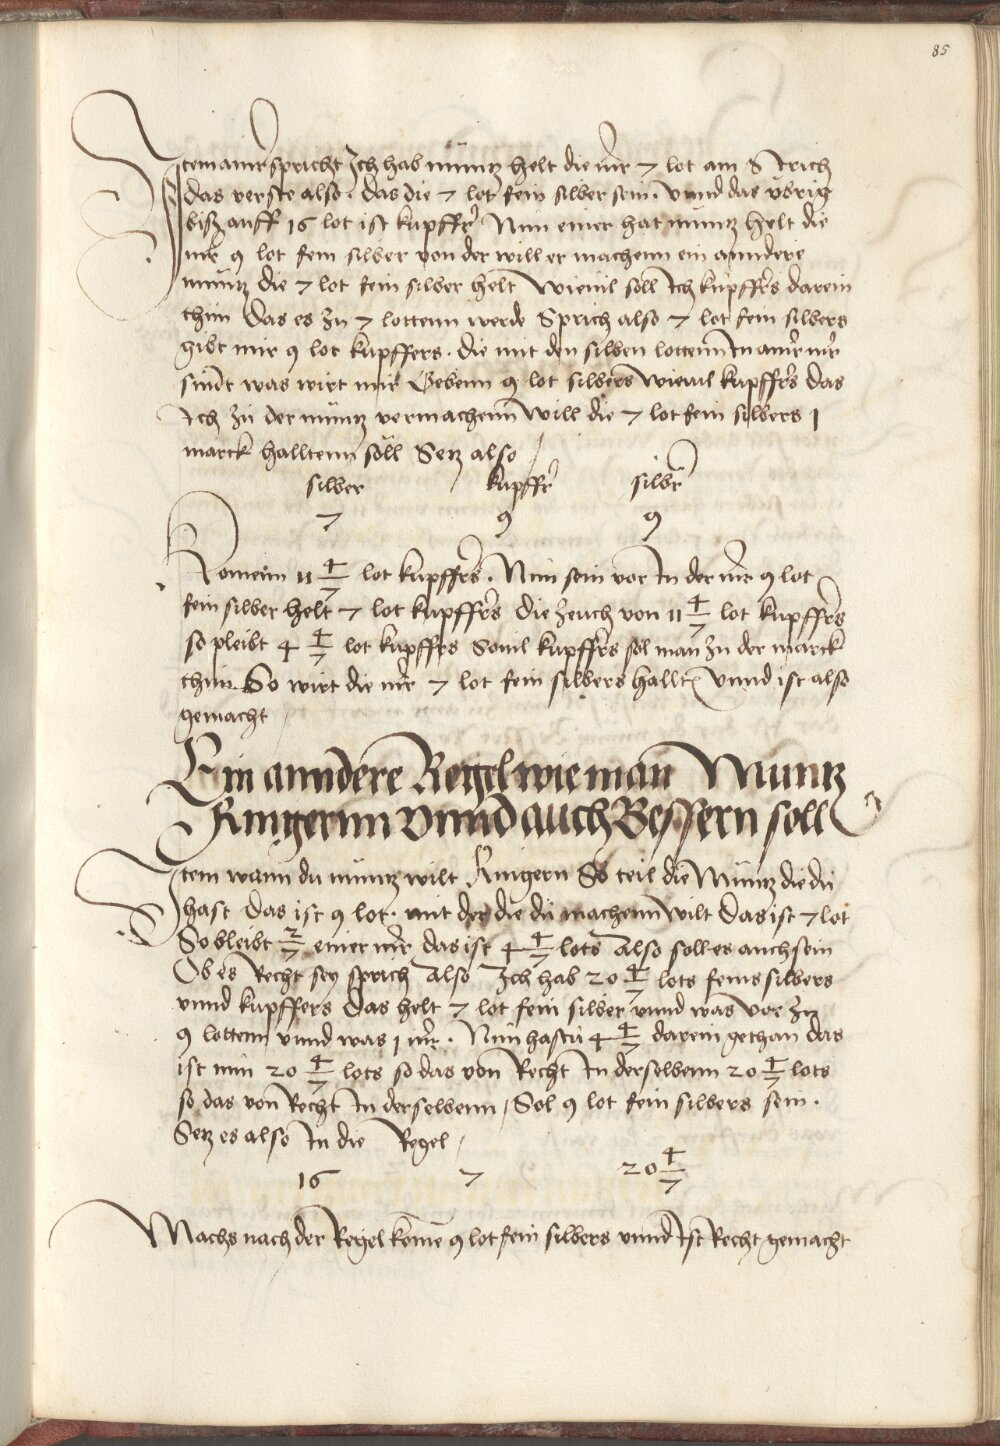 85
Item ainer spricht Ich hab müntz helt die mr 7 lot am Strich
das verste also. das die 7 lot fein silber sein. vnnd das vbrig
biß auff 16 lot ist kupffer Nun einer hat müntz helt die
mr 9 lot fein silber von der will er machenn ein anndere
müntz die 7 lot fein silber helt Wieuil soll Ich kupffers darein
thun Das es zu 7 lottenn werde Sprich also 7 lot fein silbers
gibt mir 9 lot kupffers. die mit den silben lottenn In ainer mr
sindt was wirt mir Gebenn 9 lot silbers Wieuil kupffers das
Ich zu der müntz vermachenn will die 7 lot fein silbers 1
marck halltenn soll Setz also
silber kupffer silber
7 9 9
Komenn 11 4/7 lot kupffers. Nun sein vor In der mr 9 lot
fein silber helt 7 lot kupffers die zeuch von 11 4/7 lot kupffers
so pleibt 4 4/7 lot kupffers Souil kupffers sol man zu der marck
thun. So wirt die mr 7 lot fein silbers hallten Vnnd ist also
gemacht
Ein anndere Regel wie man Muntz
Ringernn Vnnd auch Bessern soll
Item wann du müntz wilt Ringern So teil die Müntz die du
hast das ist 9 lot. mit der die du machenn wilt Das ist 7 lot
So bleibt 2/7 einer mr das ist 4 4/7 lots Also soll es auch sein
Ob es Recht sey sprich Also Ich hab 20 4/7 lots feins silbers
vnnd kupffers das helt 7 lot fein silber vnnd was vor zu
9 lottenn vnnd was 1 mr. Nun hastu 4 4/7 darein gethan das
ist nun 20 4/7 lots so das von Recht In derselbenn 20 4/7 lots
so das von Recht In derselbenn / Sol 9 lot fein silbers sein.
Setz es also In die Regel /
16 7 20 4/7
Machs nach der Regel kome 9 lot fein silbers vnnd Ist Recht gemacht